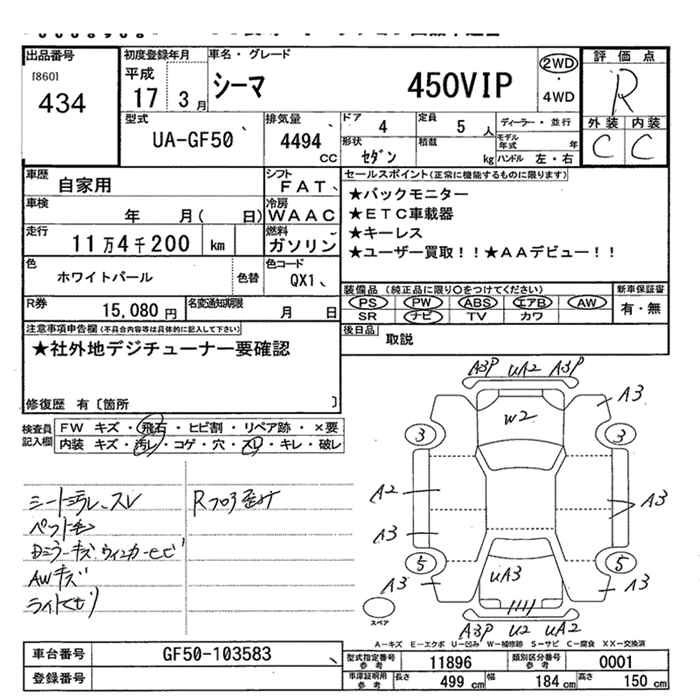 出品番号
[860]
434
初度登録年月
平成
17 3月
車名・グレード
シーマ 450VIP
2WD
・
4WD
評価点
R
外装 内装
C C
型式
UA-GF50
排気量
4494
cc
ドア
4
定員
5人
形状
セダン
積載
kg
ディーラー・並行
モデル
年式 年
ハンドル 左・右
車歴
自家用
シフト
FAT
車検
年 月( 日)
冷房
WAAC
走行
11万4千200 km
燃料
ガソリン
色
ホワイトパール
色替
色コード
QX1
R券
15,080円
名変通知期限
月 日
セールスポイント(正常に機能するものに限ります)
★バックモニター
★ETC車載器
★キーレス
★ユーザー買取!!★AAデビュー!!
装備品(純正品に限り○をつけてください)
新車保証書
PS PW ABS エアB AW
SR ナビ TV カワ
有・無
後日品 取説
注意事項申告欄(不具合内容等は具体的に記入して下さい)
★社外地デジチューナー要確認
修復歴 有〔箇所 〕
検査員
記入欄
FW キズ・飛石・ヒビ割・リペア跡・×要
内装 キズ・汚レ・コゲ・穴・スレ・キレ・破レ
シート汚レ、スレ
ペット毛
Dミラーキズ ウィンカーヒビ
AWキズ
ライトくもり
Rフロア歪み
A3P UA2 A3P
A3
W2
3 3
A2
A3
A3
5 5
UA3
A3 A3
A3P U2 UA2
スペア
A-キズ E-エクボ U-凹み W-補修跡 S-サビ C-腐食 XX-交換済
車台番号 GF50-103583
登録番号
型式指定番号
参考
11896
類別区分番号
参考
0001
車庫証明用
参考
長さ 499cm 幅 184cm 高さ 150cm